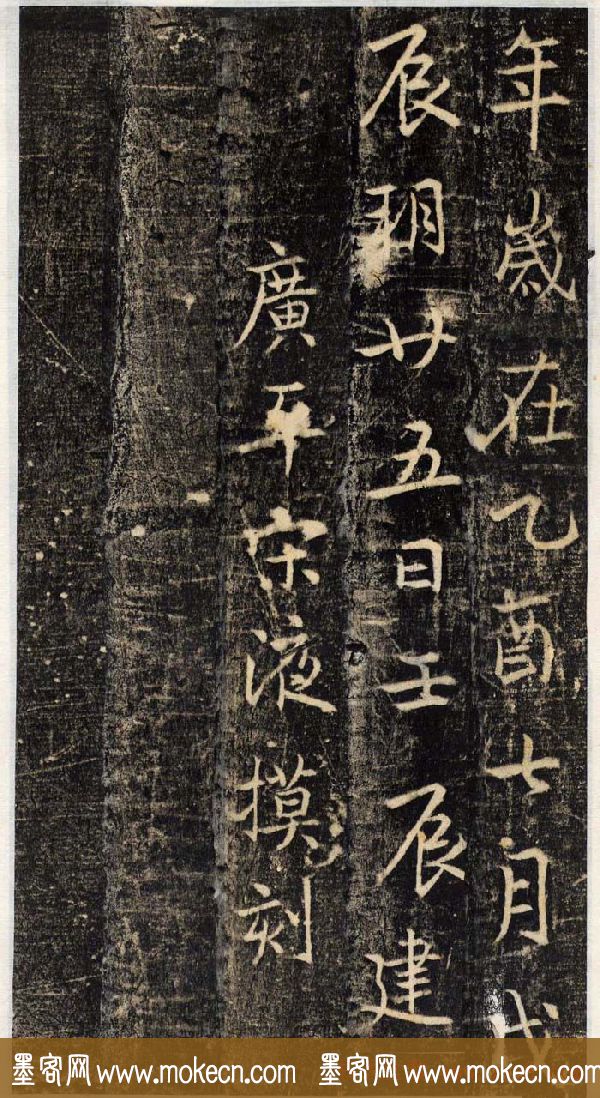 年歲在乙酉七月戊
辰朔廿五日壬辰建
廣平宋液摸刻
墨客网 www.mokecn.com 墨客网 www.mokecn.com